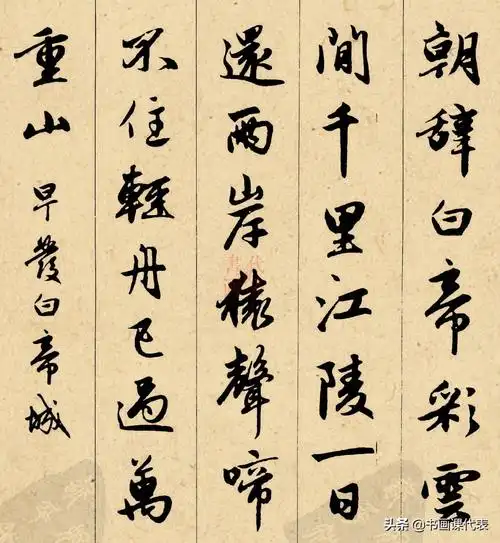 朝辞白帝彩雲
間千里江陵一日
還兩岸猿聲啼
不住輕舟已過萬
重山 早發白帝城
头条 @书画课代表